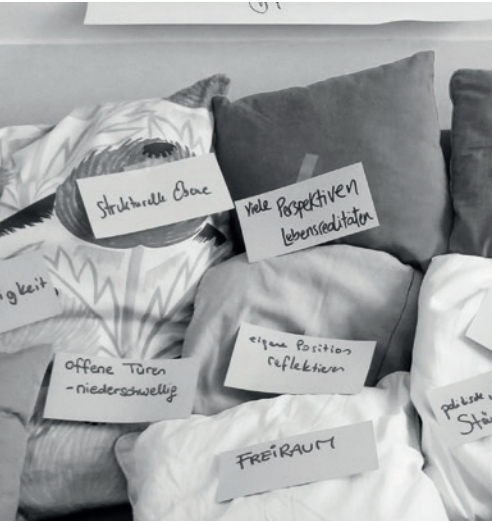 Strukturelle Ebene
viele Perspektiven
Lebensrealitäten
igkeit
Offene Türen
-niederschwellig
eigene Position
reflektieren
politische
Stä
FREIRAUM